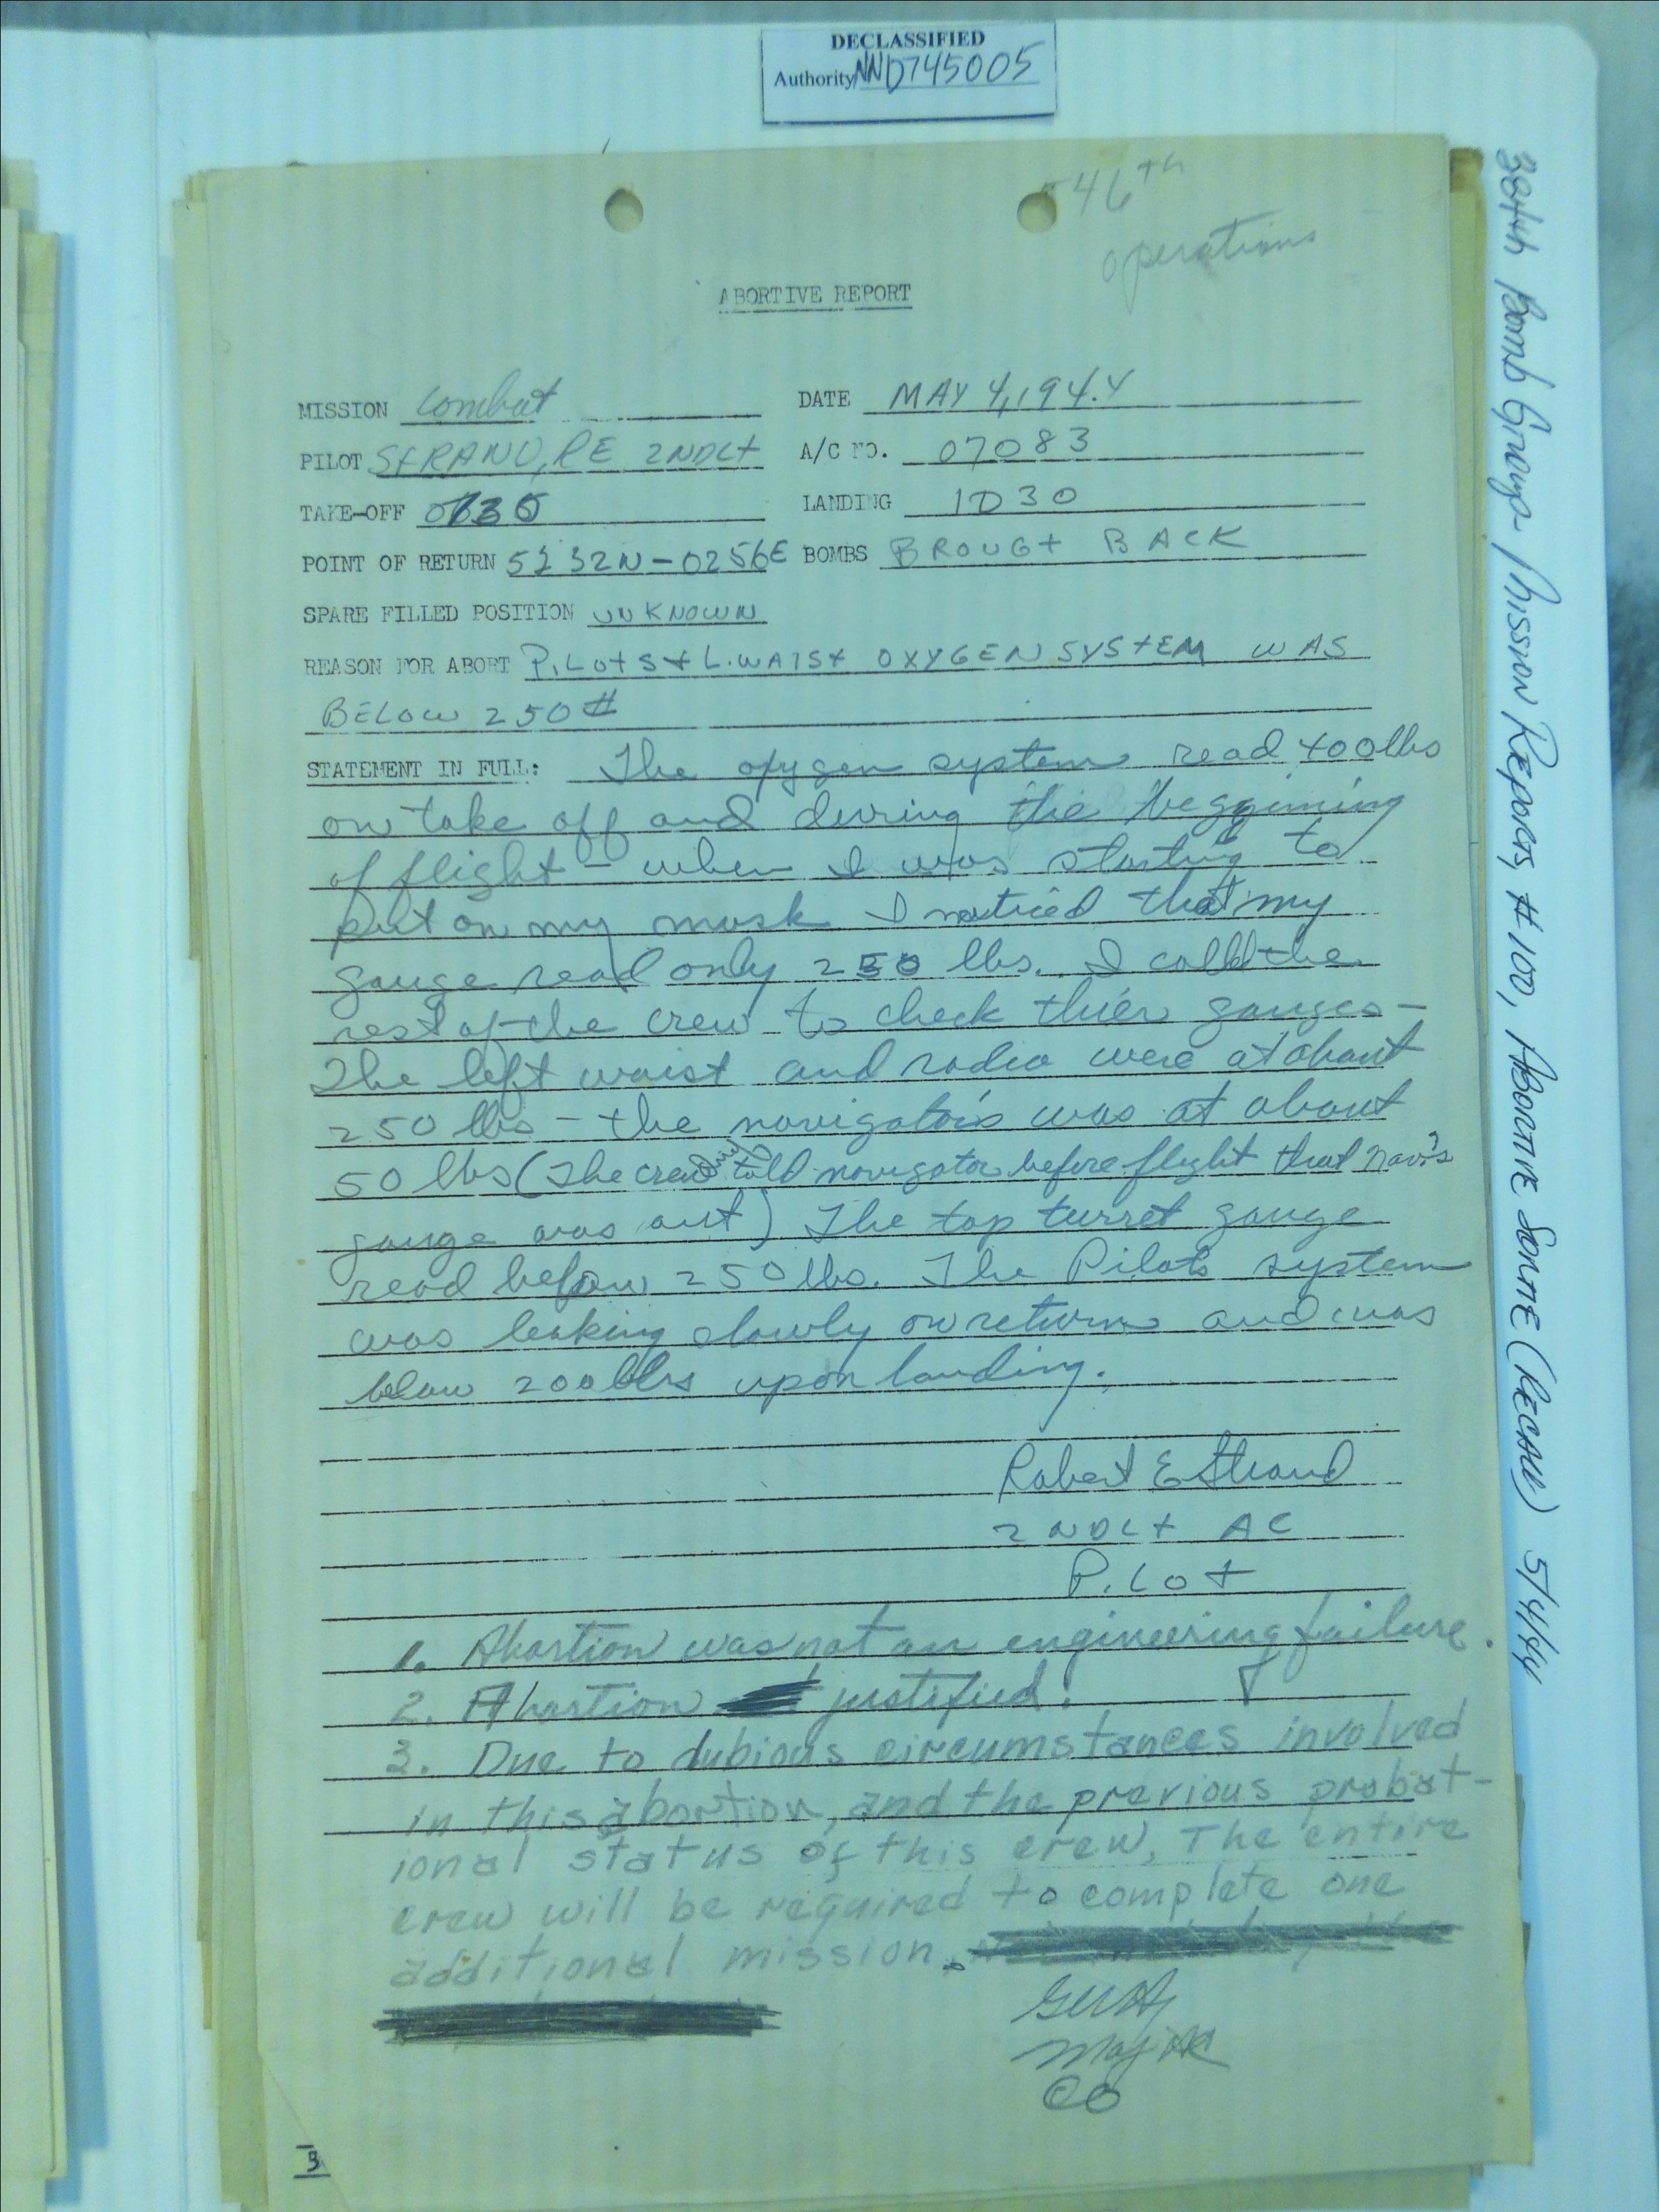 DECLASSIFIED
Authority NND745005
546th
operations
ABORTIVE REPORT
MISSION Combat DATE MAY 4, 1944
PILOT STRAND, RE 2NDLt A/C NO. 07083
TAKE-OFF LANDING 1030
POINT OF RETURN 5232N-0256E BOMBS BROUGt BACK
SPARE FILLED POSITION UNKNOWN
REASON FOR ABORT PiLots + L.WAISt OXYGEN SYStEM WAS
BELOW 250#
STATEMENT IN FULL: The oxygen system read 400lbs
on take off and during the beggining
of flight - when I was starting to
put on my mask I noticed that my
gauge read only 250 lbs. I called the
rest of the crew to check thier gauges -
The left waist and radio were at about
250 lbs - the navigators was at about
50 lbs (The crew chief told navigator before flight that Nav's
gauge was out) The top turret gauge
read below 250 lbs. The Pilots system
was leaking slowly on return and was
below 200 lbs upon landing.
Robert E Strand
2NDLt AC
PiLot
1. Abortion was not an engineering failure.
2. Abortion justified.
3. Due to dubious circumstances involved
in this abortion, and the previous probat-
ional status of this crew, The entire
crew will be required to complete one
additional mission.
Maj AC
CO
3
384th Bomb Group - Mission Reports, #100, ABORTIVE SORTIE (RECALL) 5/4/44